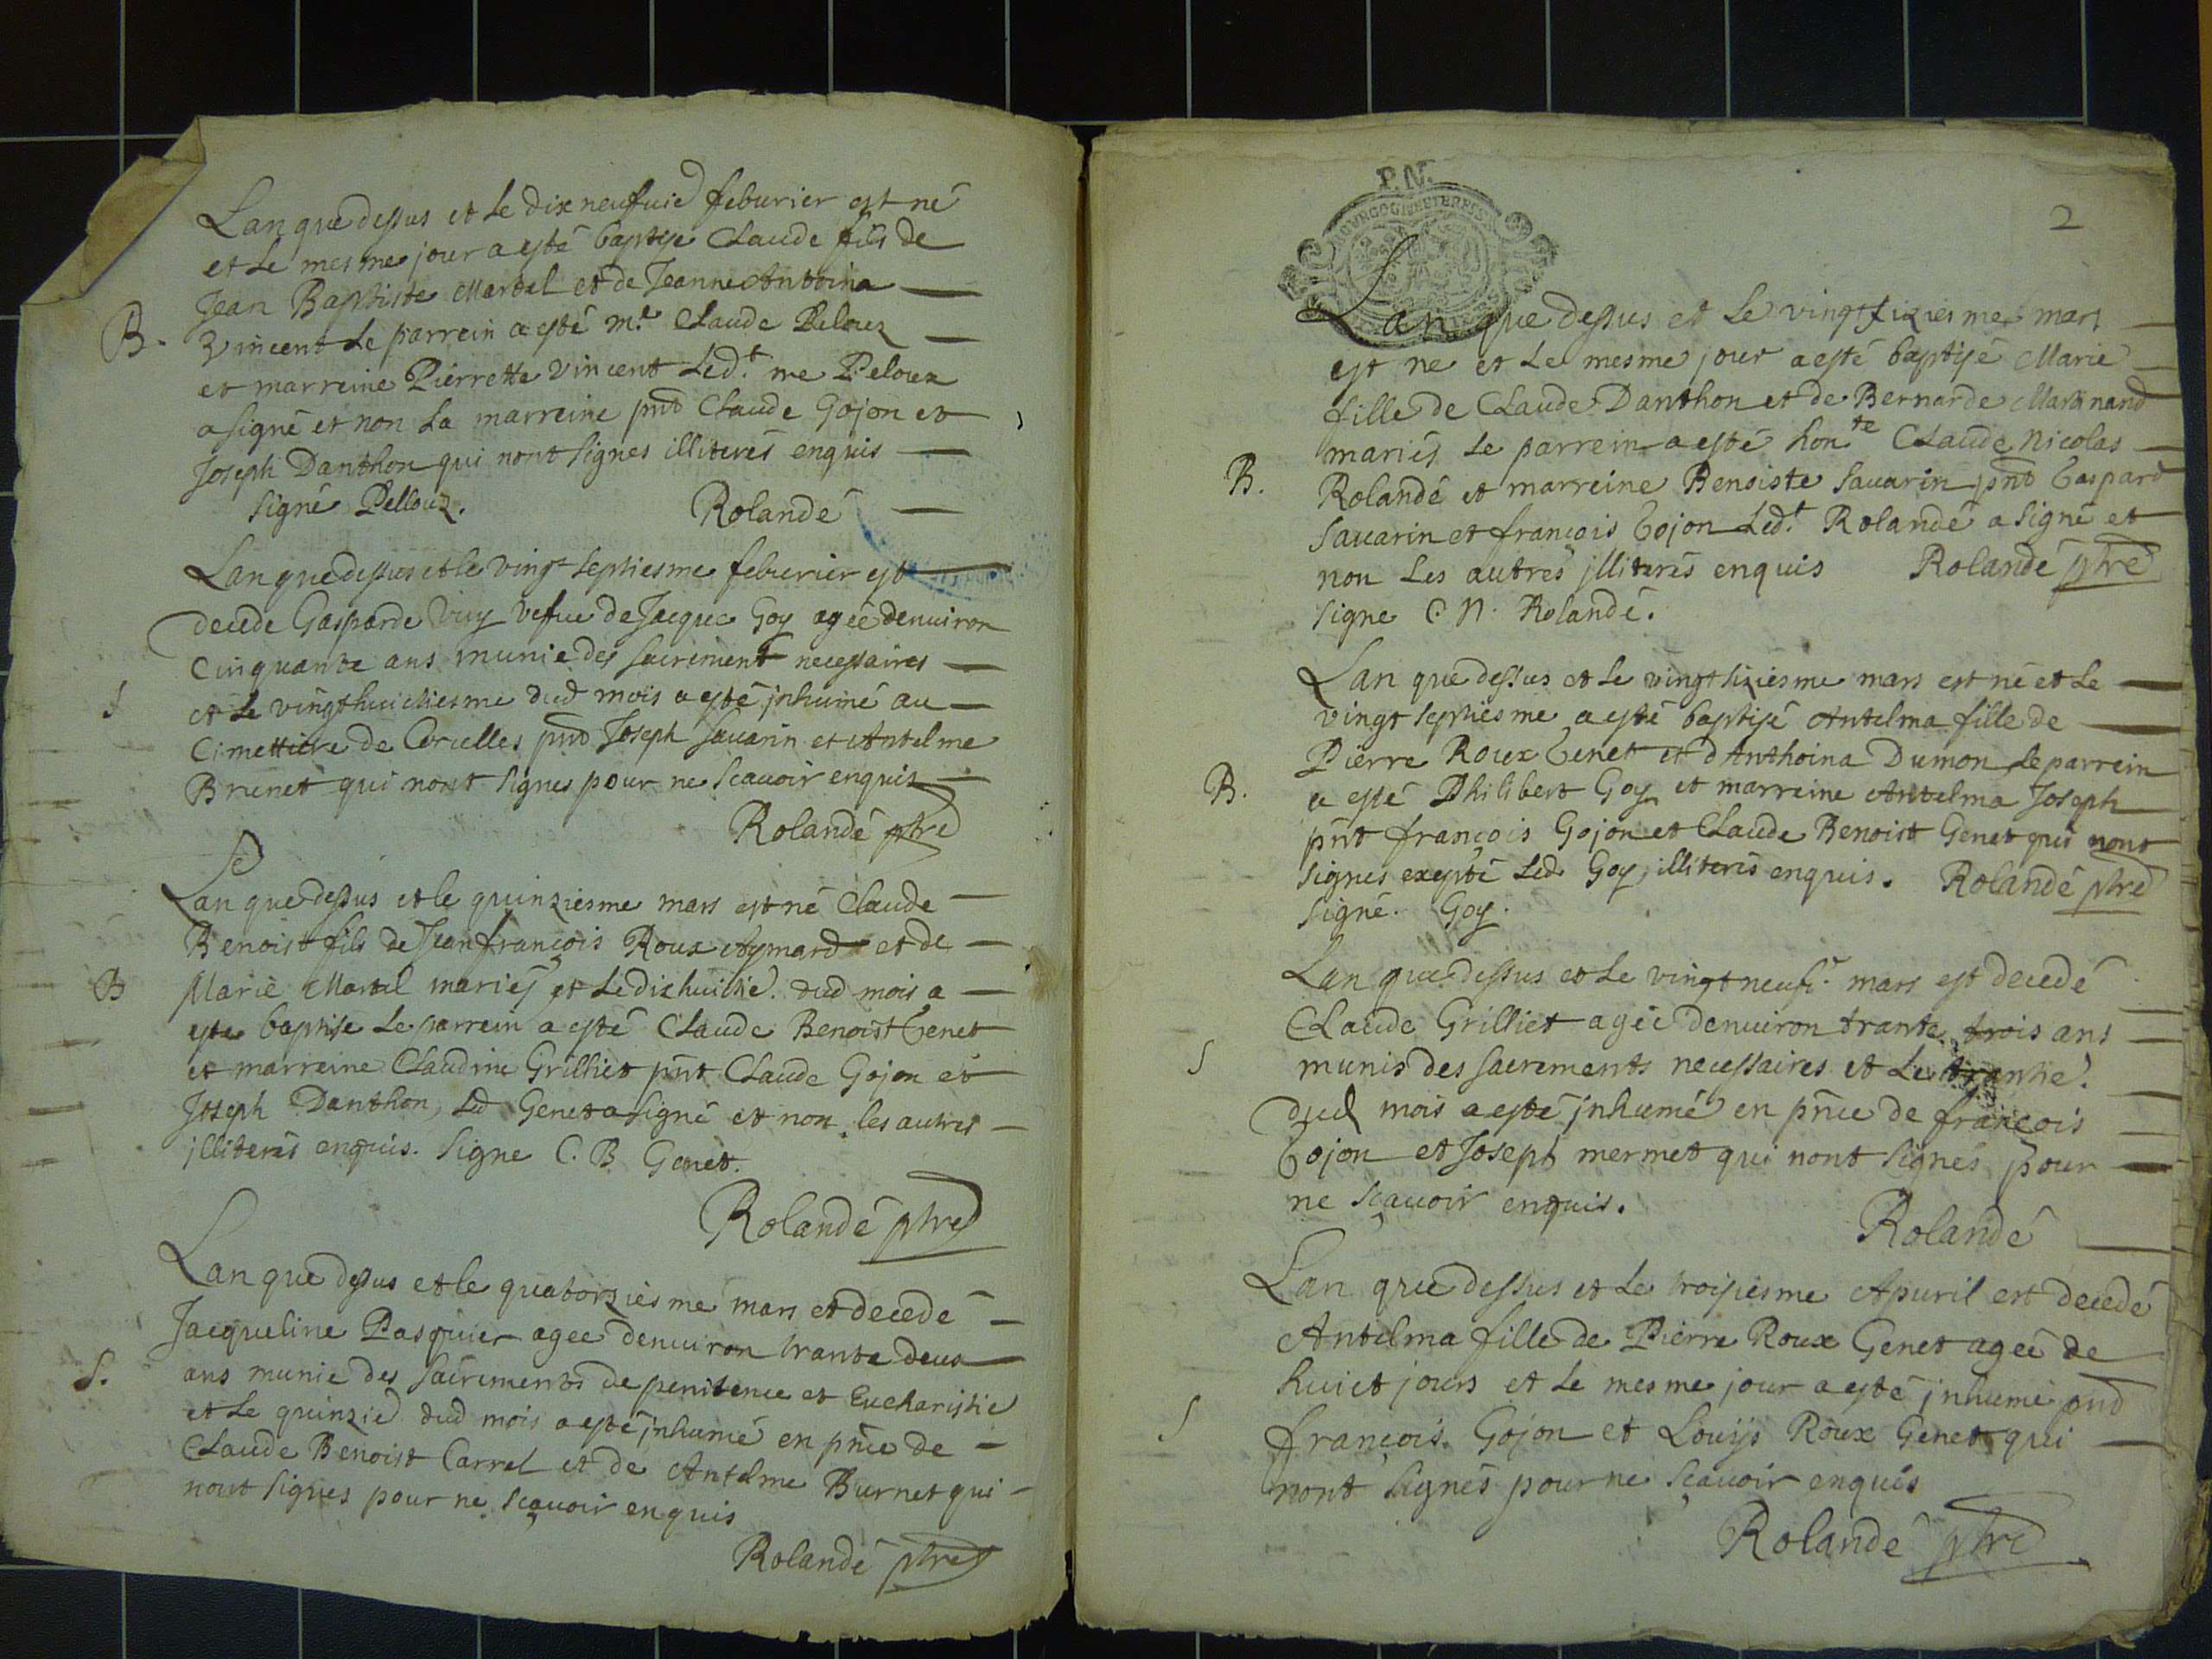 Lan que dessus et le dix neufuie feburier est né
et le mesme jour a esté baptise Claude fils de
Jean Baptiste Martel et de Jeanne Antoina
B. Vincent le parrein a esté m.e Claude Pelouz
et marreine Pierrette Vincent led.t me Peloux
a signé et non la marreine pnt Claude Gojon et
Joseph Danthon qui nont signes illiterés enquis
signé Pellouz. Rolandé
Lan que dessus et le vingt septiesme feburier est
decede Gasparde Vuy vefue de Jacque Goy agée denuiron
Cinquante ans munie des sacrement necessaires
S et le vingthuictiesme dud mois a esté jnhumé au
Cimettiere de Corcelles pnt Joseph Sauarin et Antelme
Brunet qui nont signes pour ne scauoir enquis
Rolandé ptre
Lan que dessus et le quinziesme mars est né Claude
Benoist fils de Jean françois Roux Aymard et de
B Marie Martel mariés et le dix huitie. dud mois a
este baptise le parrein a esté Claude Benoist Genet
et marreine Claudine Grilliet pnt Claude Gojon et
Joseph Danthon, led Genet a signé et non les autres
jlliterés enquis. Signe C. B Genet.
Rolandé ptre
Lan que dessus et le quatorziesme mars et decedé
Jacqueline Pasquier agee denuiron trante deux
S. ans munie des sacrements de penitence et Eucharistie
et le quinzie dud mois a esté jnhumé en pnce de
Claude Benoist Carrel et de Antelme Burnet qui
nont signes pour ne sçauoir enquis
Rolandé ptre
2
P. N.
BOURGOGNE ET BRESSE
Lan que dessus et le vingt sixiesme mars
est ne et le mesme jour a esté baptisé Marie
fille de Claude Danthon et de Bernarde Martinand
mariés le parrein a esté hon.te Claude Nicolas
B. Rolandé et marreine Benoiste Sauarin pnt Gaspard
Sauarin et françois Gojon led.t Rolandé a signé et
non les autres jlliterés enquis Rolandé ptre
signe C. N. Rolandé.
Lan que dessus et le vingt sixiesme mars est né et le
vingt septiesme a esté baptisé Antelma fille de
Pierre Roux Genet et dAnthoina Dumon, le parrein
B. a esté Philibert Goy et marreine Antelma Joseph
pnt françois Gojon et Claude Benoist Genet qui nont
signes excepté led. Goy, illiterés enquis. Rolandé ptre
signé. Goy.
Lan que dessus et le vingt neufi.e mars est decedé
Claude Grilliet agée denuiron trante trois ans
S munis des sacrements necessaires et le trantie.
dud mois a esté jnhumé en pnce de françois
Gojon et Joseph mermet qui nont signés pour
ne sçauoir enquis.
Rolandé
Lan que dessus et le troisiesme Apuril est decedé
Antelma fille de Pierre Roux Genet agée de
huict jours et le mesme jour a esté jnhumé pnt
S françois. Gojon et Louijs Roux Genet qui
nont signés pour ne sçauoir enquis
Rolandé ptre